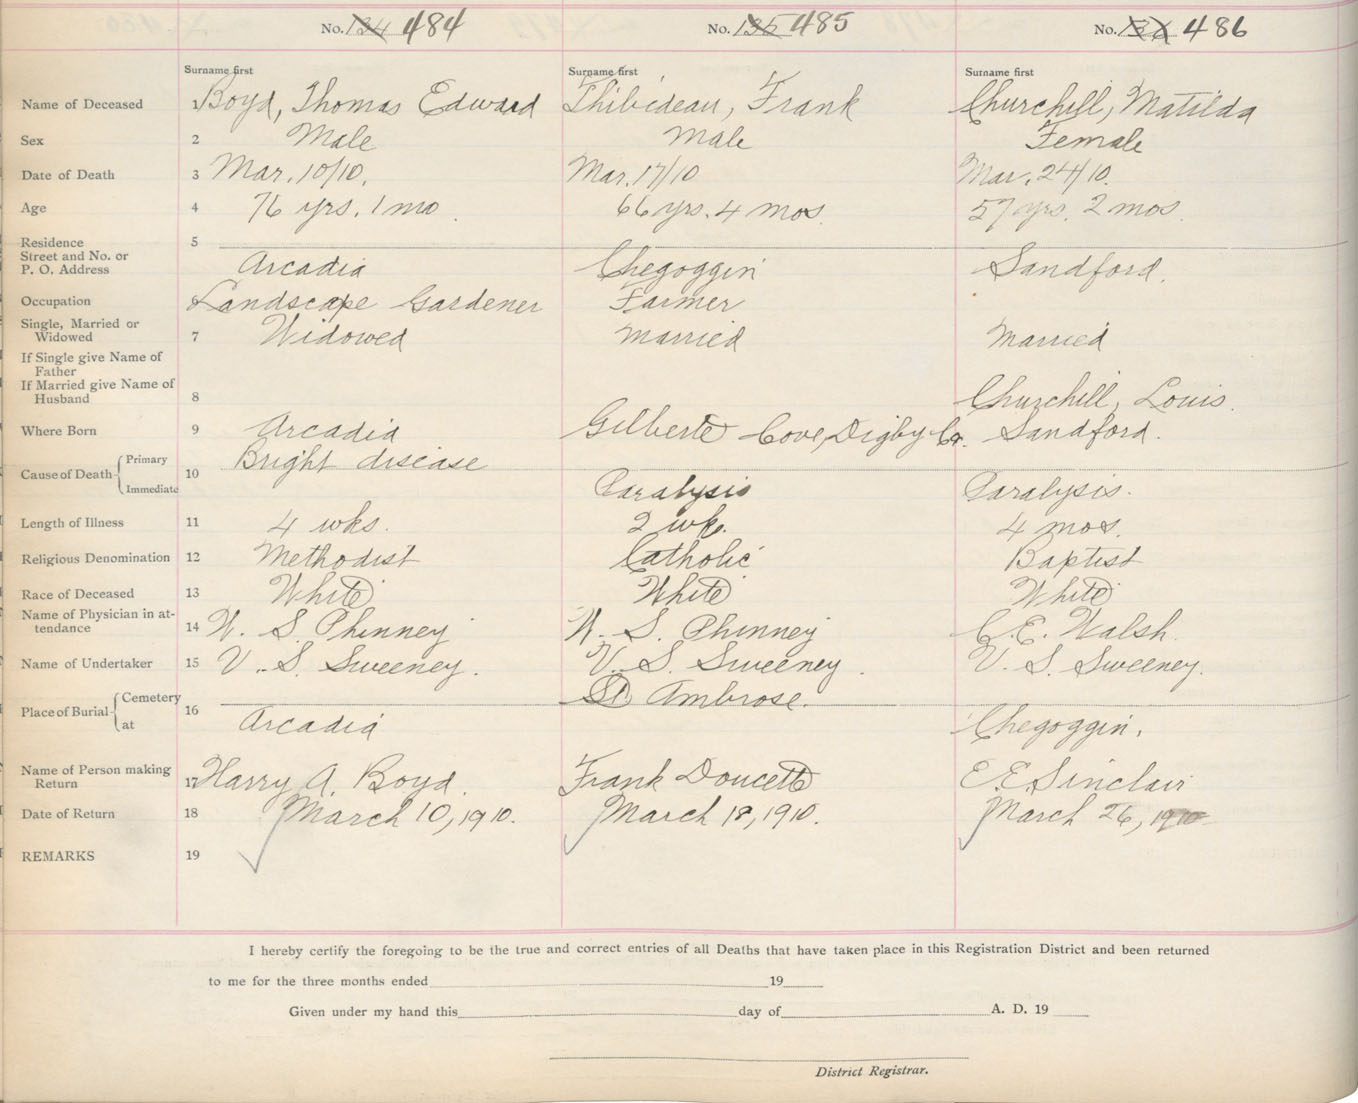 No. 134 484 No. 135 485 No. 136 486
Surname first Surname first Surname first
Name of Deceased 1 Boyd, Thomas Edward Thibideau, Frank Churchill, Matilda
Sex 2 Male Male Female
Date of Death 3 Mar. 10/10. Mar. 17/10 Mar. 24/10.
Age 4 76 yrs. 1 mo. 66 yrs. 4 mos. 57 yrs. 2 mos.
Residence 5
Street and No. or
P. O. Address Arcadia Chegoggin Sandford.
Occupation 6 Landscape Gardener Farmer
Single, Married or
Widowed 7 Widowed Married Married
If Single give Name of
Father
If Married give Name of
Husband 8 Churchill, Louis.
Where Born 9 Arcadia Gilberte Cove, Digby Co. Sandford.
Cause of Death Primary 10 Bright disease
Immediate Paralysis Paralysis.
Length of Illness 11 4 wks. 2 wks. 4 mos.
Religious Denomination 12 Methodist Catholic Baptist
Race of Deceased 13 White White White
Name of Physician in at-
tendance 14 W. S. Phinney W. S. Phinney C. E. Walsh.
Name of Undertaker 15 V. S. Sweeney. V. S. Sweeney. V. S. Sweeney.
Place of Burial Cemetery 16 St Ambrose.
at Arcadia Chegoggin.
Name of Person making
Return 17 Harry A. Boyd. Frank Doucette E. E. Sinclair
Date of Return 18 March 10, 1910. March 18, 1910. March 26, 1910
REMARKS 19
I hereby certify the foregoing to be the true and correct entries of all Deaths that have taken place in this Registration District and been returned
to me for the three months ended 19
Given under my hand this day of A. D. 19
District Registrar.